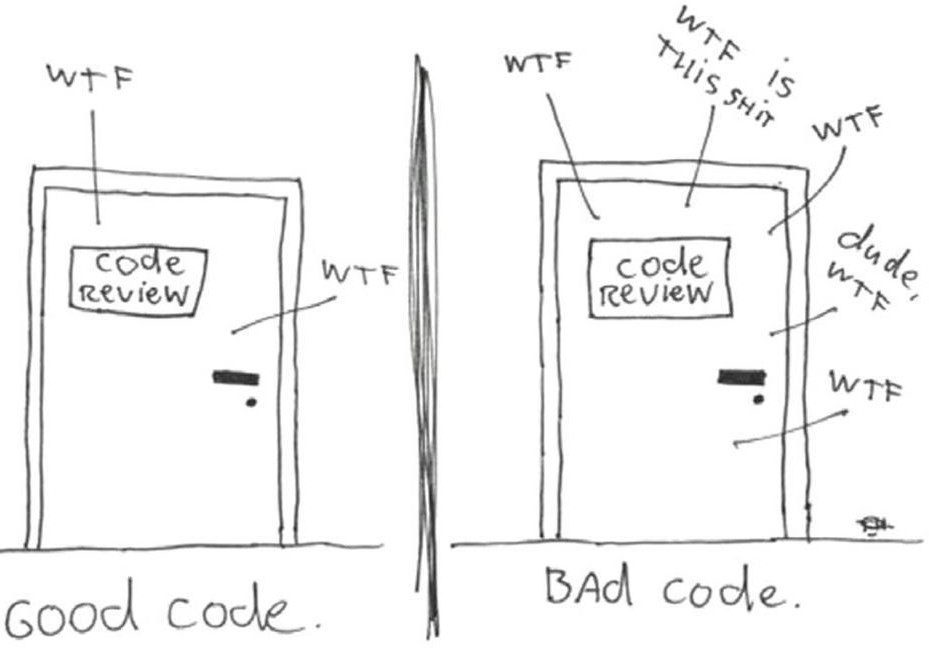 WTF
code
REViEW
WTF
GOOD code.
WTF
WTF is
THiS SHiT
WTF
dude,
WTF
code
REViEW
WTF
BAd code.